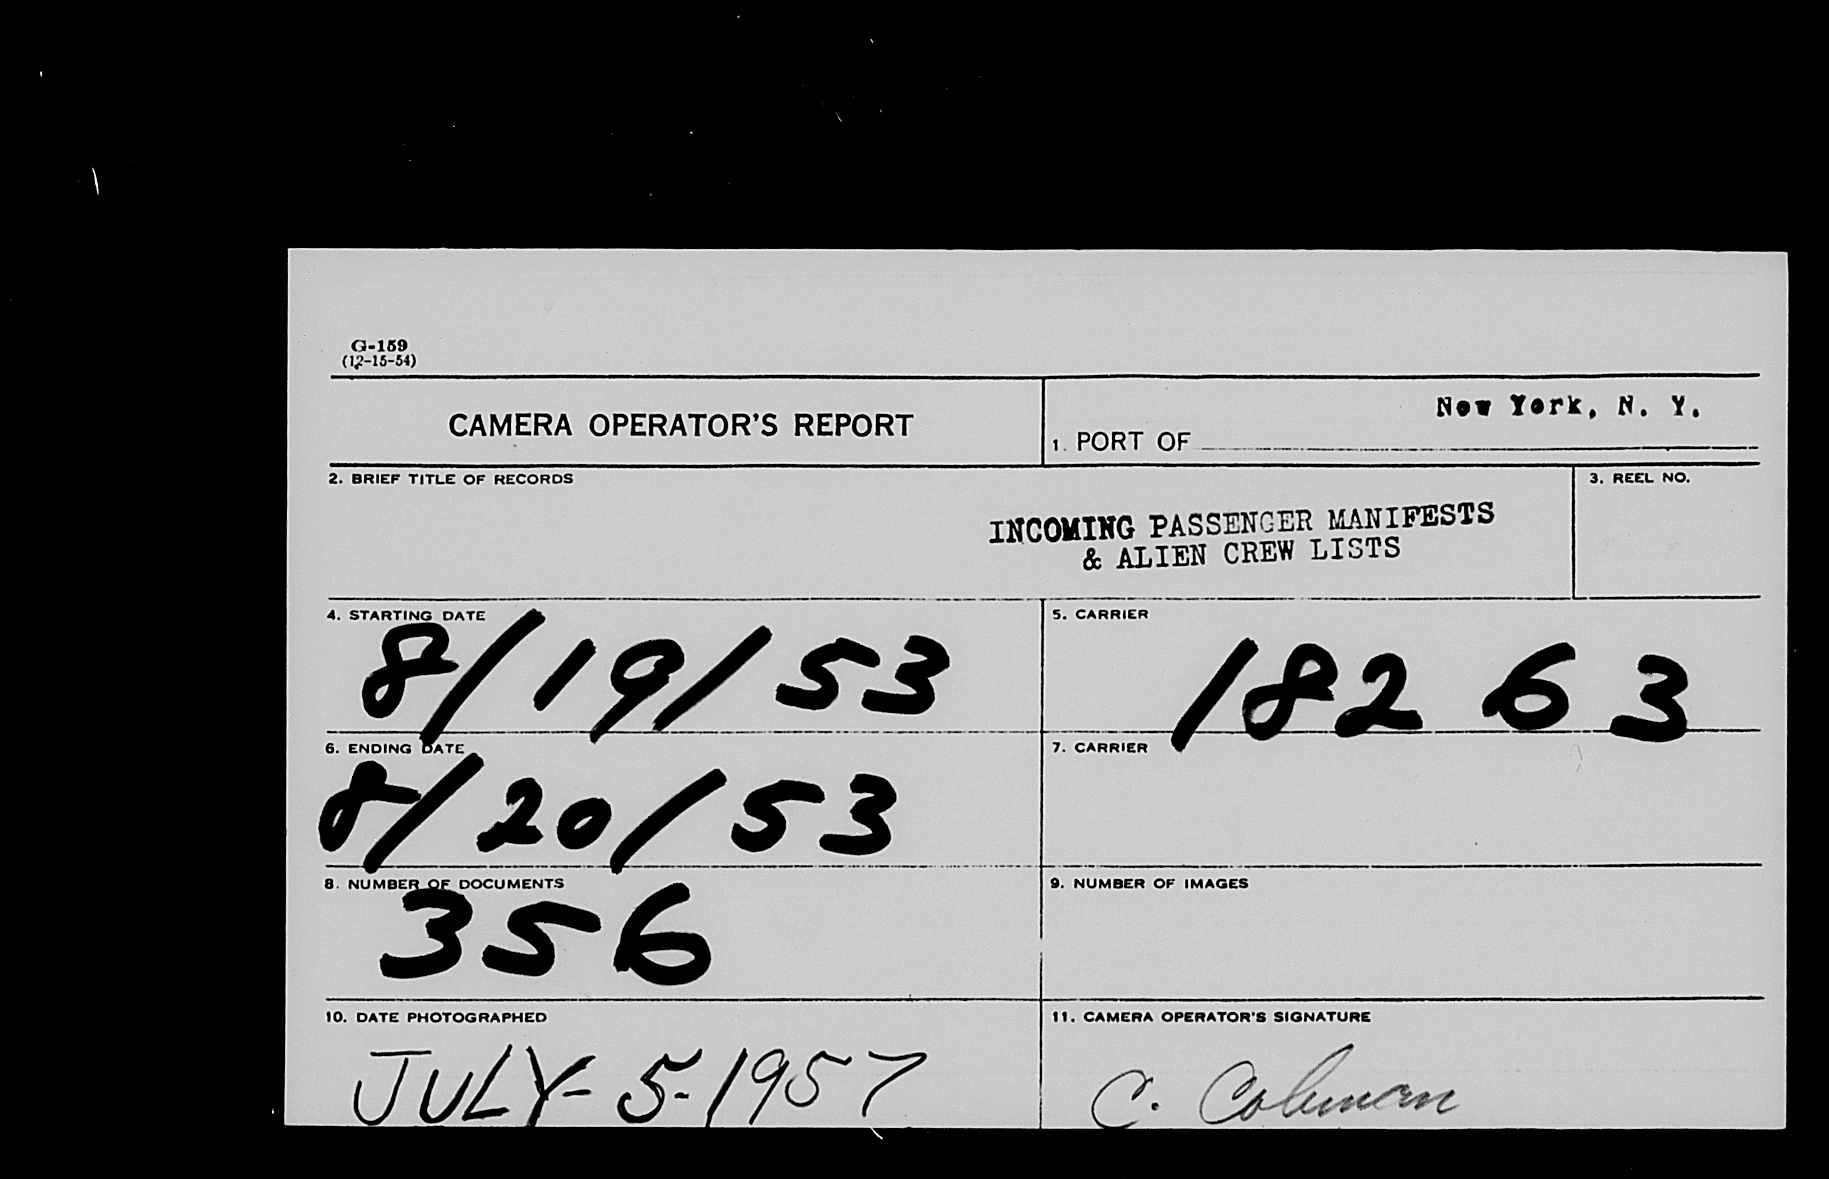 G-159
(12-15-54)
CAMERA OPERATOR'S REPORT
1. PORT OF New York, N. Y.
2. BRIEF TITLE OF RECORDS
INCOMING PASSENGER MANIFESTS
& ALIEN CREW LISTS
3. REEL NO.
4. STARTING DATE
8/19/53
5. CARRIER
18263
6. ENDING DATE
8/20/53
7. CARRIER
8. NUMBER OF DOCUMENTS
356
9. NUMBER OF IMAGES
10. DATE PHOTOGRAPHED
JULY-5-1957
11. CAMERA OPERATOR'S SIGNATURE
C. Colman